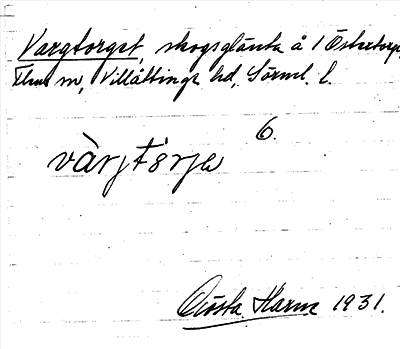 Vargtorget, skogsglänta å 1 Östertorp,
Flens sn, Villåttinge hd, Sörml. l.
6.
vàrjtörje
Gösta Harne 1931.